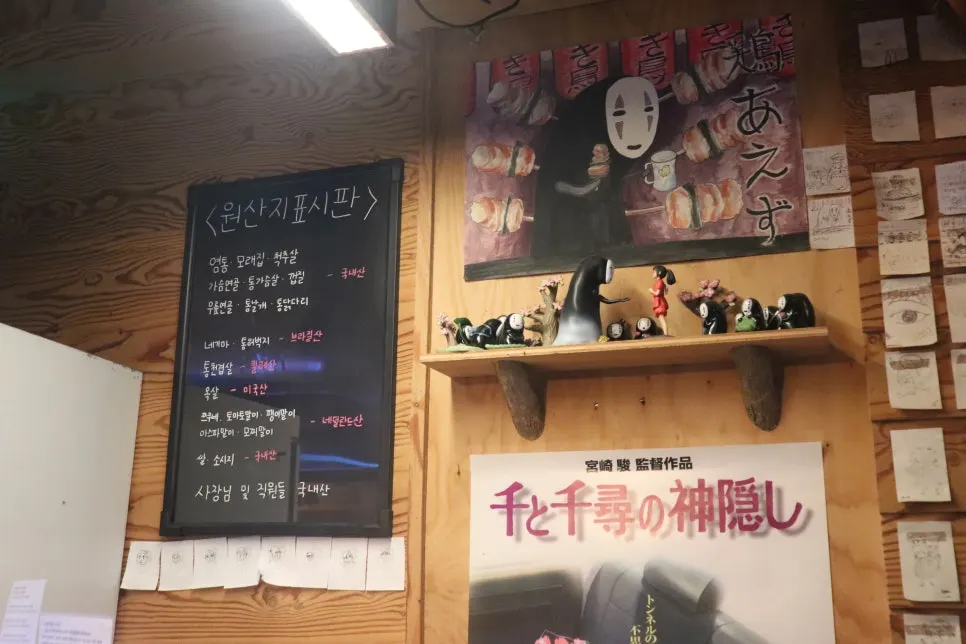 <원산지표시판>
염통 · 모래집 · 척추살
가슴연골 · 통가슴살 · 껍질 - 국내산
무릎연골 · 통날개 · 통닭다리
네기마 · 통허벅지 - 브라질산
통천겹살 -
목살 - 미국산
토마토말이 · 팽이말이 - 네덜란드산
아스파말이 · 모찌말이
쌀 · 소시지 - 국내산
사장님 및 직원들 국내산
鶏あえず
宮崎 駿 監督作品
千と千尋の神隠し
トンネルの